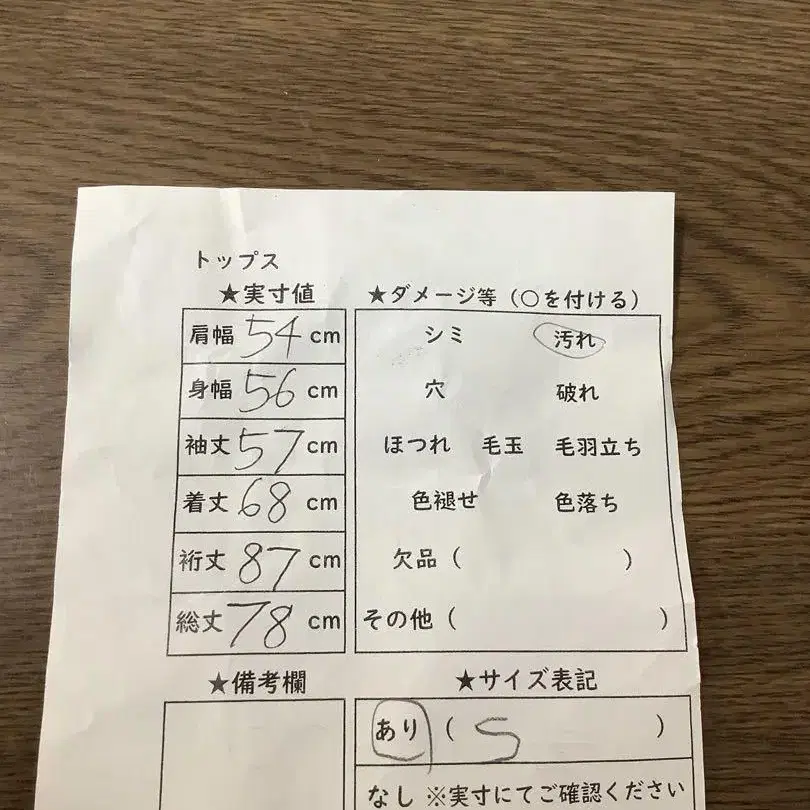 トップス
★実寸値
肩幅 54 cm
身幅 56 cm
袖丈 57 cm
着丈 68 cm
裄丈 87 cm
総丈 78 cm
★ダメージ等（○を付ける）
シミ 汚れ
穴 破れ
ほつれ 毛玉 毛羽立ち
色褪せ 色落ち
欠品（ ）
その他（ ）
★備考欄
★サイズ表記
あり（ S ）
なし ※実寸にてご確認ください